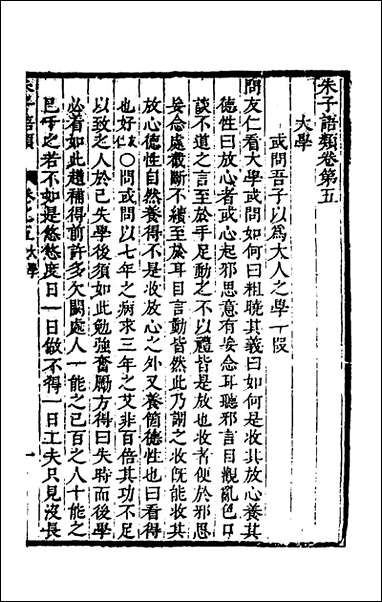 朱子語類卷第五
大學
或問吾子以爲大人之學一段
問友仁看大學或問如何曰粗曉其義曰如何是收其放心養其
德性曰放心者或心起邪思意有妄念耳聽邪言目觀亂色口
談不道之言至於手足動之不以禮皆是放也收者便於邪思
妄念處截斷不續至於耳目言動皆然此乃謂之收旣能收其
放心德性自然養得不是收放心之外又養箇德性也曰看得
也好友仁○問或問以七年之病求三年之艾非百倍其功不足
以致之人於已失學後須如此勉強奮勵方得曰失時而後學
必着如此趲補得前許多欠闕處人一能之己百之人十能之
己千之若不如是悠悠度日一日做不得一日工夫只見沒長
朱子語類 卷之五 大學 一